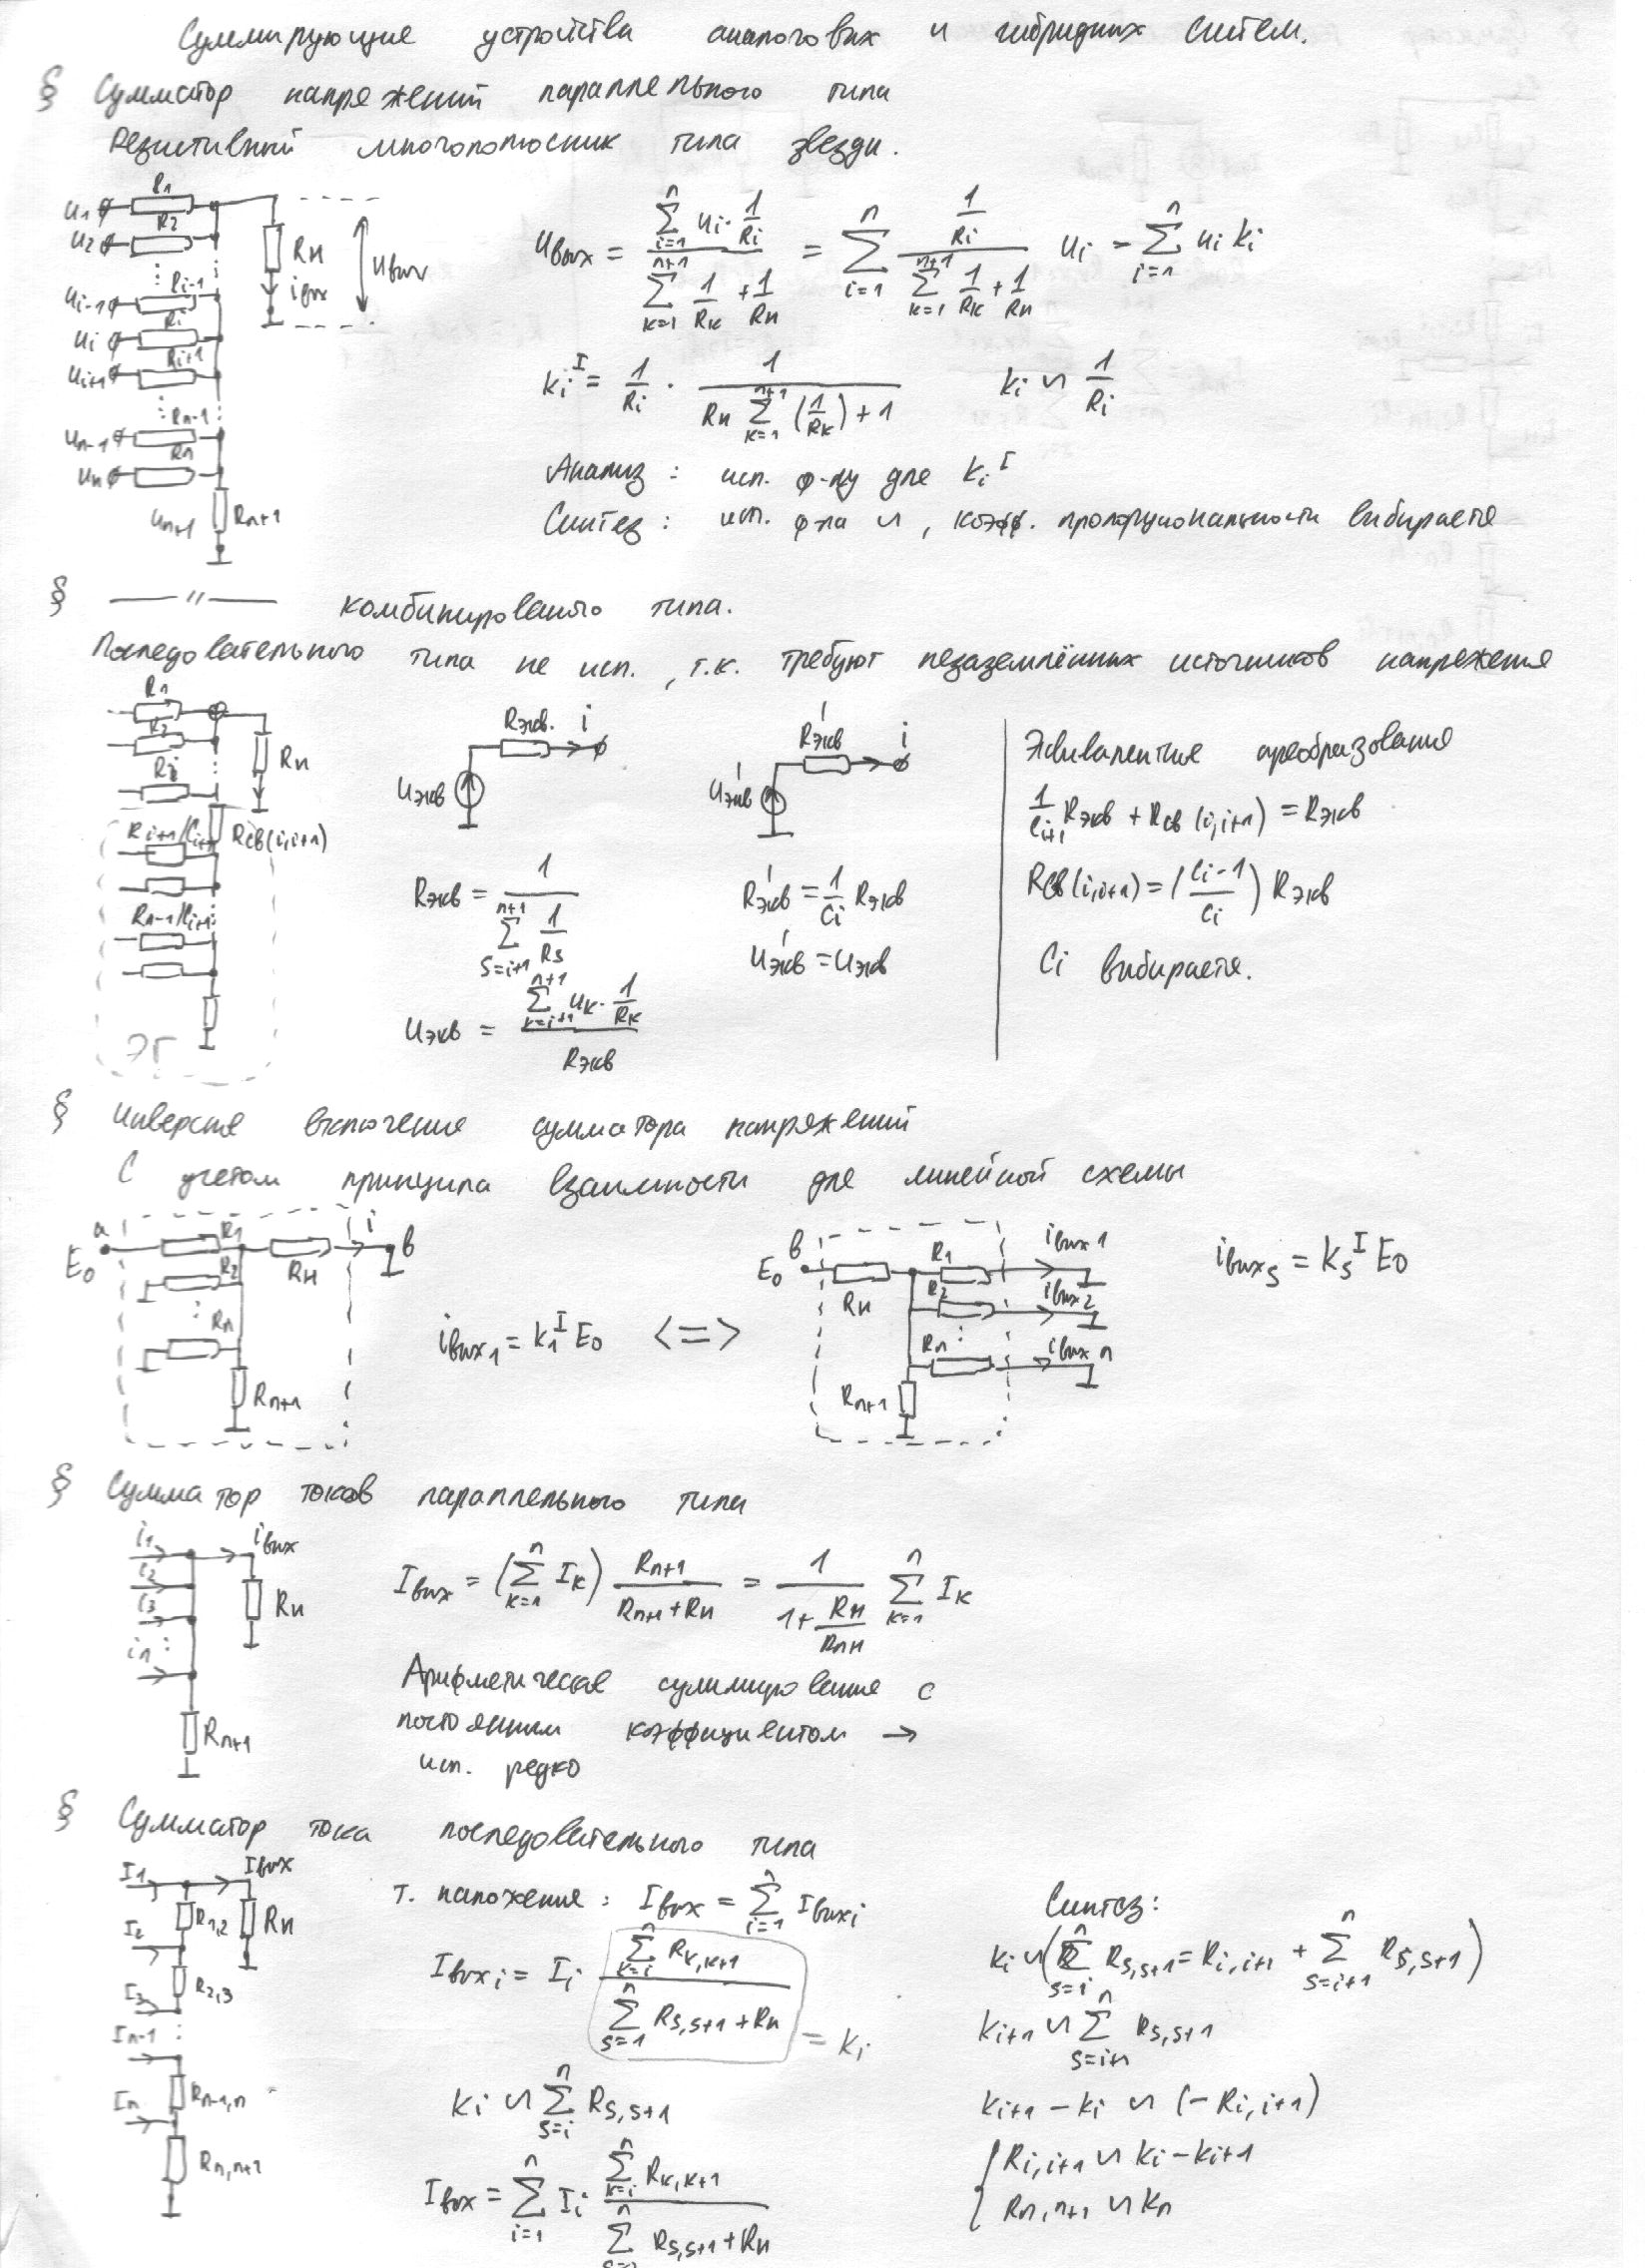 Суммирующие устройства аналоговых и гибридных систем.
§ Сумматор напряжений параллельного типа
Резистивный многополюсник типа звезды.
u1 R1
u2 R2
Rн iвых uвых
ui-1 Ri-1
ui Ri
ui+1 Ri+1
un-1 Rn-1
un Rn
un+1 Rn+1
uвых = (∑_{i=1}^{n} ui · 1/Ri) / (∑_{k=1}^{n+1} 1/Rk + 1/Rн) = ∑_{i=1}^{n} (1/Ri) / (∑_{k=1}^{n+1} 1/Rk + 1/Rн) ui = ∑_{i=1}^{n} ui ki
ki^I = 1/Ri · 1 / (Rн ∑_{k=1}^{n+1} (1/Rk) + 1) ki ∽ 1/Ri
Анализ: исп. ф-лу для ki^I
Синтез: исп. ф-ла ∽, коэфф. пропорциональности выбирается
§ —— // —— комбинированого типа.
Последовательного типа не исп., т.к. требуют незаземлённых источников напряжения
R1
R2
Ri
Rн
Ri+1/Ci+1 Rсв(i,i+1)
Rn-1/Ci+1
ЭГ
Rэкв. i
Uэкв
R'экв i
U'экв
Rэкв = 1 / ∑_{s=i+1}^{n+1} 1/Rs
R'экв = 1/Ci Rэкв
U'экв = Uэкв
Uэкв = (∑_{k=i+1}^{n+1} uk · 1/Rk) / Rэкв
Эквивалентные преобразования
1/Ci+1 Rэкв + Rсв(i,i+1) = Rэкв
Rсв(i,i+1) = ((Ci-1)/Ci) Rэкв
Ci выбирается.
§ Инверсное включение сумматора напряжений
С учетом принципа взаимности для линейной схемы
a R1 i b
E0 R2 Rн
Rn
Rn+1
iвых1 = k1^I E0 <=>
b R1 iвых1
E0 Rн R2 iвых2
Rn iвых n
Rn+1
iвыхs = ks^I E0
§ Сумматор токов параллельного типа
i1 iвых
i2
i3 Rн
in
Rn+1
Iвых = (∑_{k=1}^{n} Ik) Rn+1 / (Rn+1 + Rн) = 1 / (1 + Rн/Rn+1) ∑_{k=1}^{n} Ik
Арифметическое суммирование с
постоянным коэффициентом →
исп. редко
§ Сумматор тока последовательного типа
I1 Iвых
R1,2 Rн
I2
R2,3
I3
In-1
Rn-1,n
In
Rn,n+1
т. наложения: Iвых = ∑_{i=1}^{n} Iвыхi
Iвыхi = Ii (∑_{k=i}^{n} Rk,k+1) / (∑_{s=1}^{n} Rs,s+1 + Rн) = ki
ki ∽ ∑_{s=i}^{n} Rs,s+1
Iвых = ∑_{i=1}^{n} Ii (∑_{k=i}^{n} Rk,k+1) / (∑^{n} Rs,s+1 + Rн)
Синтез:
ki ∽ (∑_{s=i}^{n} Rs,s+1 = Ri,i+1 + ∑_{s=i+1}^{n} Rs,s+1)
ki+1 ∽ ∑_{s=i+1}^{n} Rs,s+1
ki+1 - ki ∽ (-Ri,i+1)
{ Ri,i+1 ∽ ki - ki+1
Rn,n+1 ∽ kn